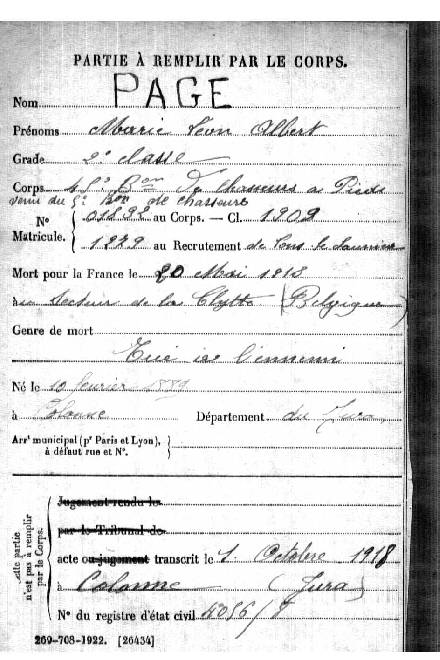 PARTIE À REMPLIR PAR LE CORPS.
Nom PAGE
Prénoms Marie Léon Albert
Grade 2e classe
Corps Bon de Chasseurs à Pieds
venu du 5e Bon de chasseurs
N° Matricule. { au Corps. — Cl. 1909
1279 au Recrutement de Lons le Saunier
Mort pour la France le 20 Mai 1918
secteur de la Clytte (Belgique)
Genre de mort
Tué à l'ennemi
Né le 10 février 1889
à Colonne Département du Jura
Arrt municipal (pr Paris et Lyon), à défaut rue et N°. }
Cette partie n'est pas à remplir par le Corps.
Jugement rendu le
par le Tribunal de
acte ou jugement transcrit le 1 Octobre 1918
à Colonne (Jura)
N° du registre d'état civil
269-708-1922. [26434]